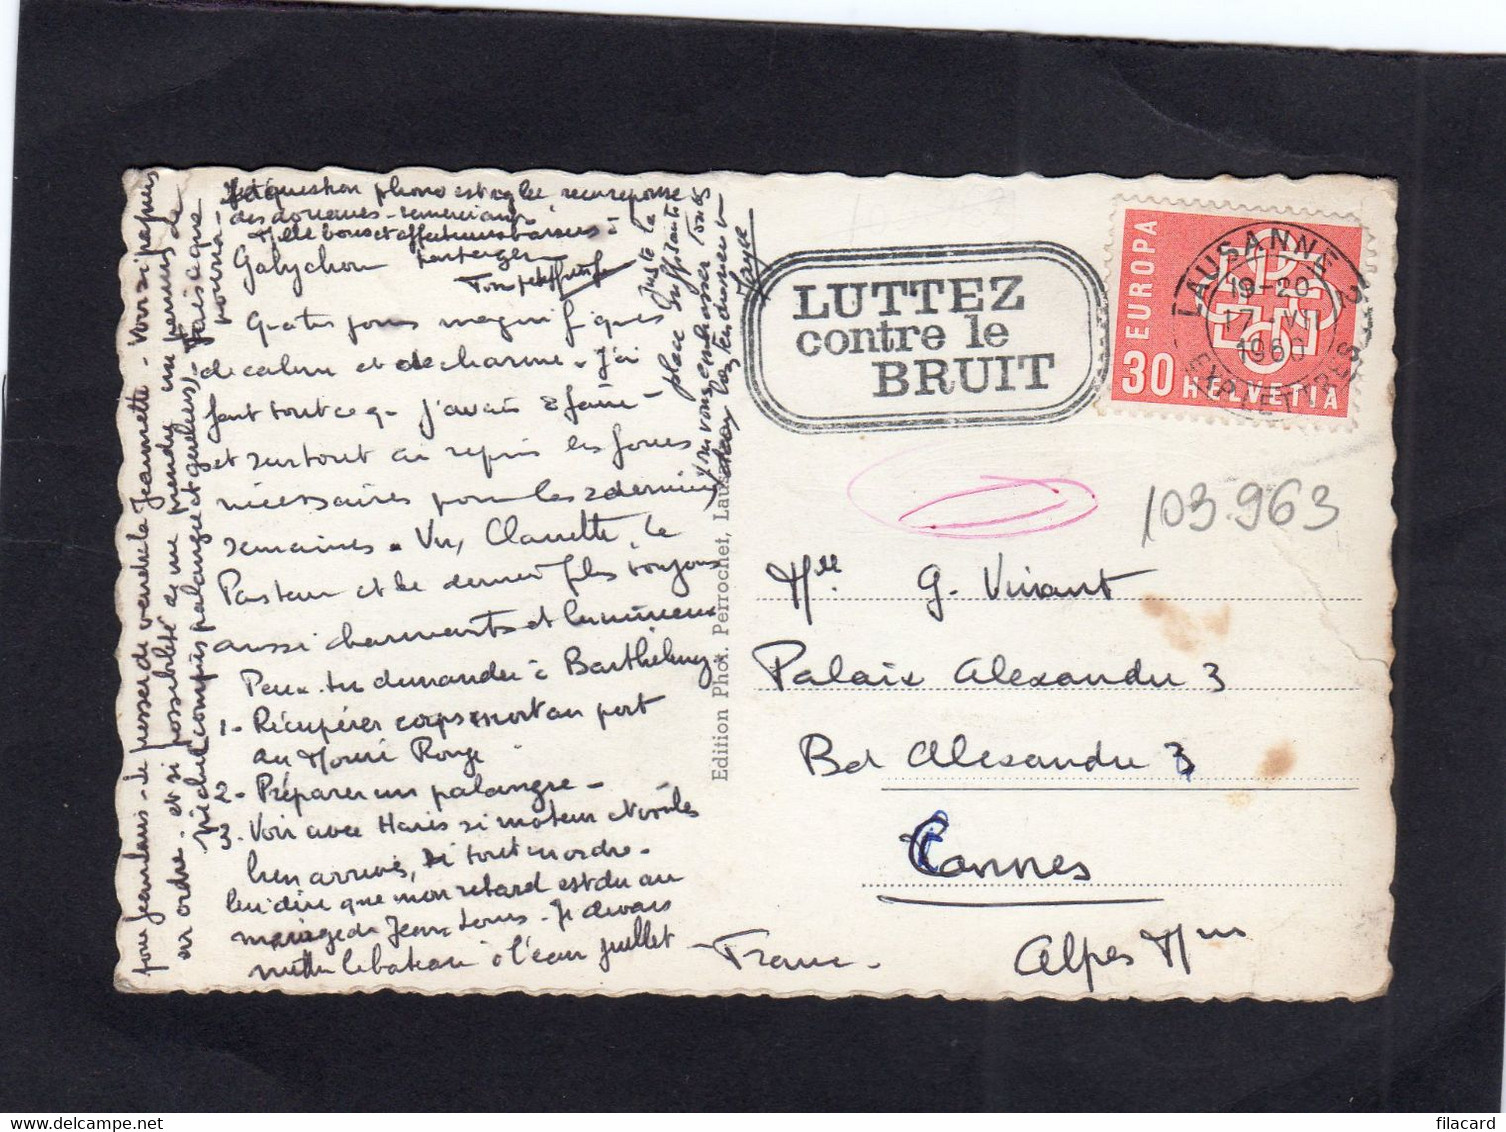 et question phono est réglée, reçu réponse
des douanes - remerciant
Mille bons et affectueux baisers à
Gabychou
Quatre jours magnifiques
de calme et de charme - J'ai
fait tout ce q. j'avais à faire -
et surtout ai repris les forces
nécessaires pour les 2 dernières
semaines. Vu, Claudette, le
Pasteur et le dernier fils toujours
aussi charmants et lumineux
Peux-tu demander à Barthélemy
1- Récupérer corps mort au port
au Mouré Rouge
2- Préparer un palangre -
3. Voir avec Harris si moteur et voiles
bien arrivés, si tout en ordre -
lui dire que mon retard est du au
mariage de Jean Louis - Je devrais
mettre le bateau à l'eau juillet
pour Jean Louis - Je presser de vendre la Jeannette - Voir si papiers
en ordre - et si possibilité de me prendre un permis de
pêche (compris palangre et
juste la
place suffisante
pour vous embrasser toutes
LUTTEZ
contre le
BRUIT
EUROPA
30 HELVETIA
LAUSANNE 2
19-20
17.VI
1960
EXP. LETTRES
103.963
Mlle G. Vivant
Palais Alexandre 3
Bd Alexandre 3
Cannes
France - Alpes Mmes
Edition Phot. Perrochet, Laus
delcampe.net
filacard